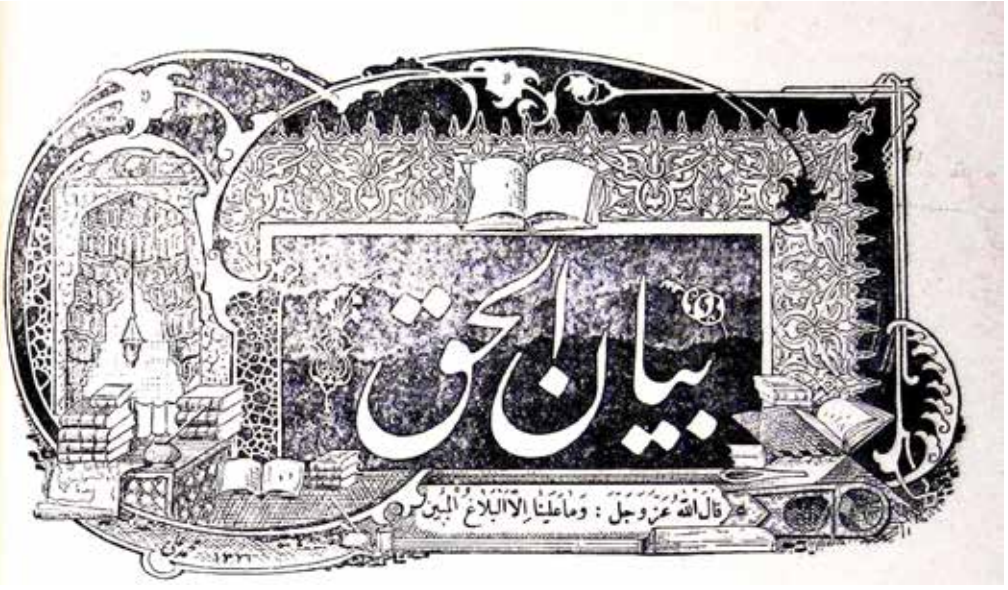 بيان الحق
قَالَ اللهُ عَزَّ وَجَلَّ : وَمَا عَلَيْنَا اِلَّا الْبَلَاغُ الْمُبِينُ